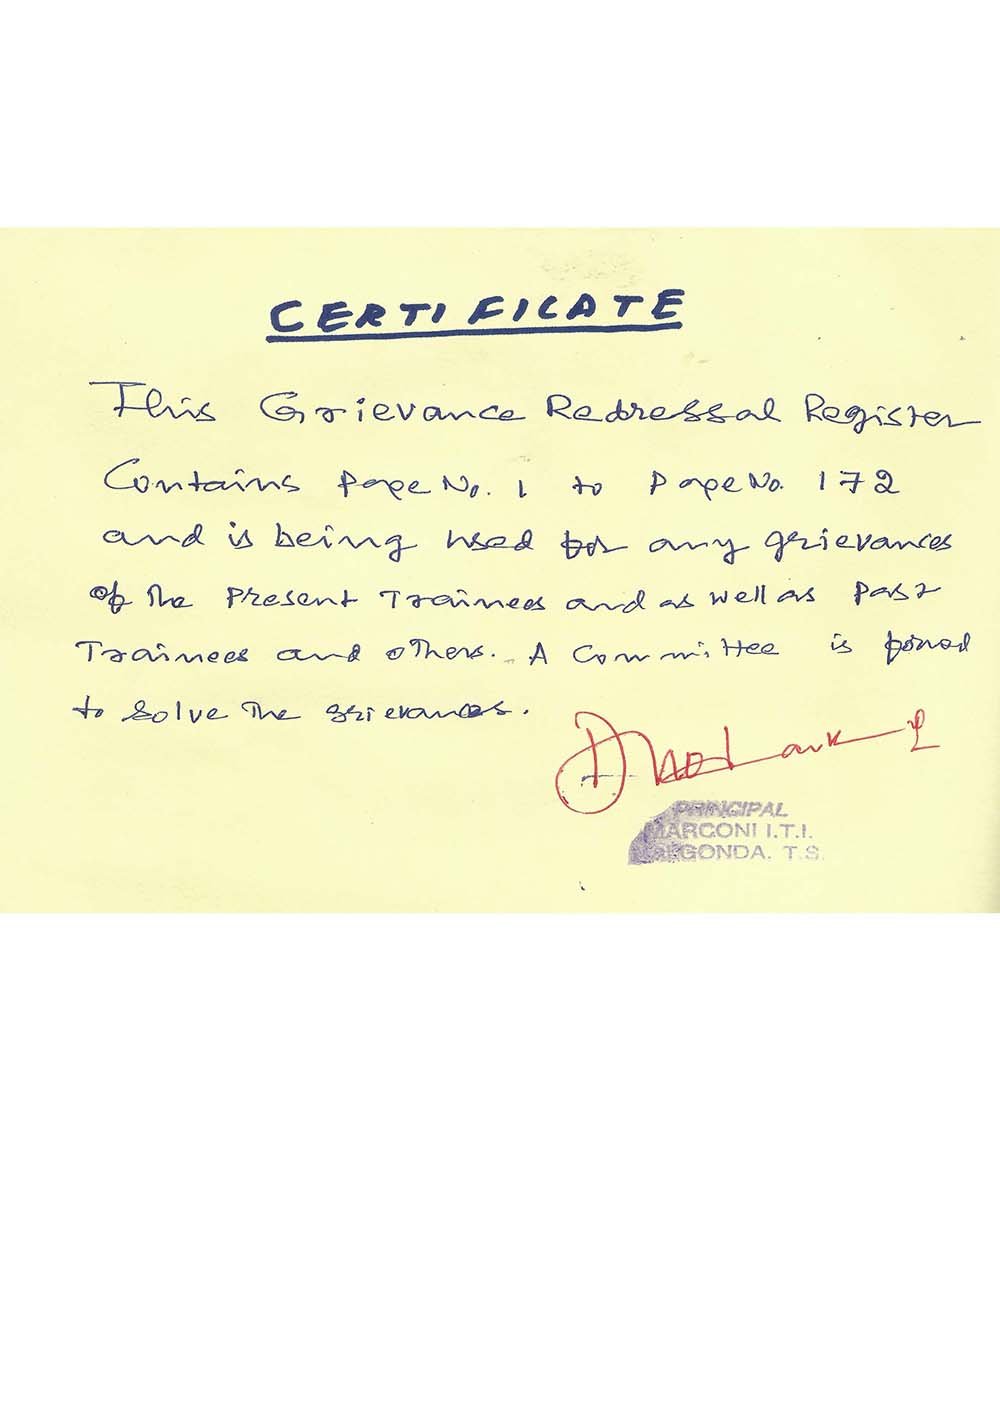 CERTIFICATE
This Grievance Redressal Register
Contains Page No. 1 to Page No. 172
and is being used for any grievances
of the Present Trainees and as well as Past
Trainees and others. A Committee is
to solve the grievances.
PRINCIPAL
MARCONI I.T.I.
NALGONDA. T.S.